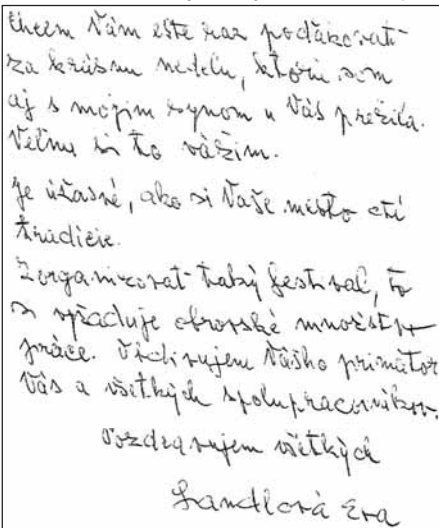 Chcem Vám ešte raz poďakovať
za krásnu nedeľu, ktorú som
aj s mojim synom u Vás prežila.
Veľmi si to vážim.
Je úžasné, ako si Vaše mesto ctí
tradície.
Zorganizovať taký festival, to
si vyžaduje obrovské množstvo
práce. Obdivujem Vášho primátor
Vás a všetkých spolupracovníkov.
Pozdravujem všetkých
Landlová Eva